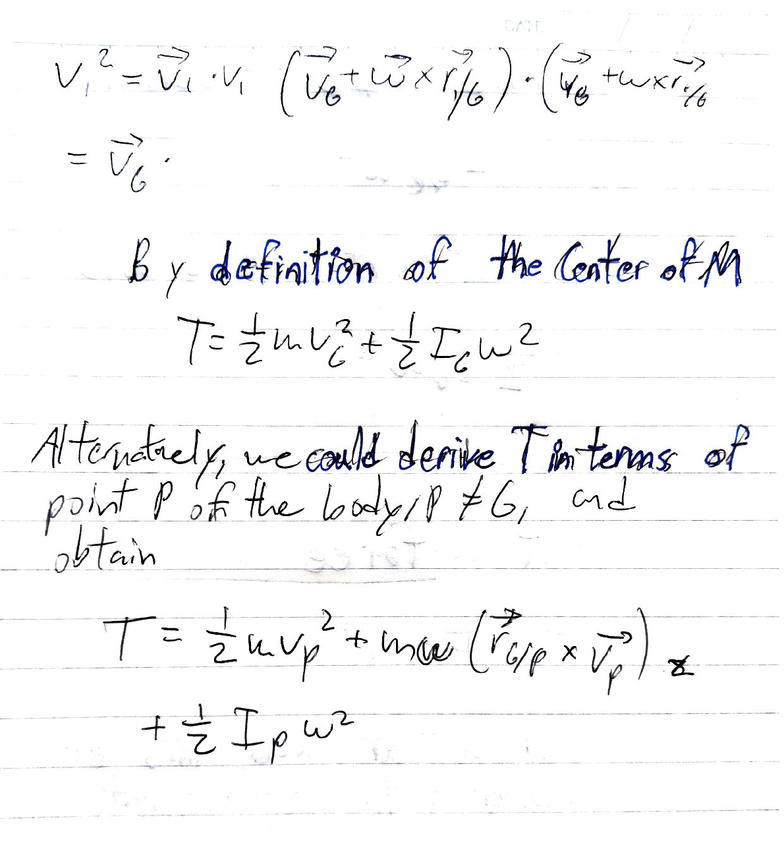 V₁² = V⃗₁ · V₁ (V⃗_G + ω⃗ × r⃗₁/G) · (V⃗_G + ω × r⃗₁/G
= V⃗_G ·
By definition of the Center of M
T = ½ m v_G² + ½ I_G ω²
Alternately, we could derive T in terms of
point P of the body, P ≠ G, and
obtain
T = ½ m v_p² + mω (r⃗_G/p × v⃗_p)_z
+ ½ I_p ω²